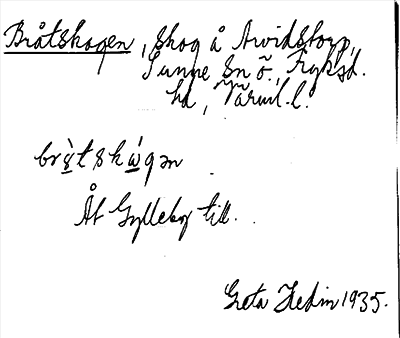 Bråtskogen, skog å Arvidstorp,
Sunne sn ö., Fryksd.
hd, Värml. l.
brỳ̠tskẁ̠gən
Åt Gylleby till.
Greta Hedin 1935.